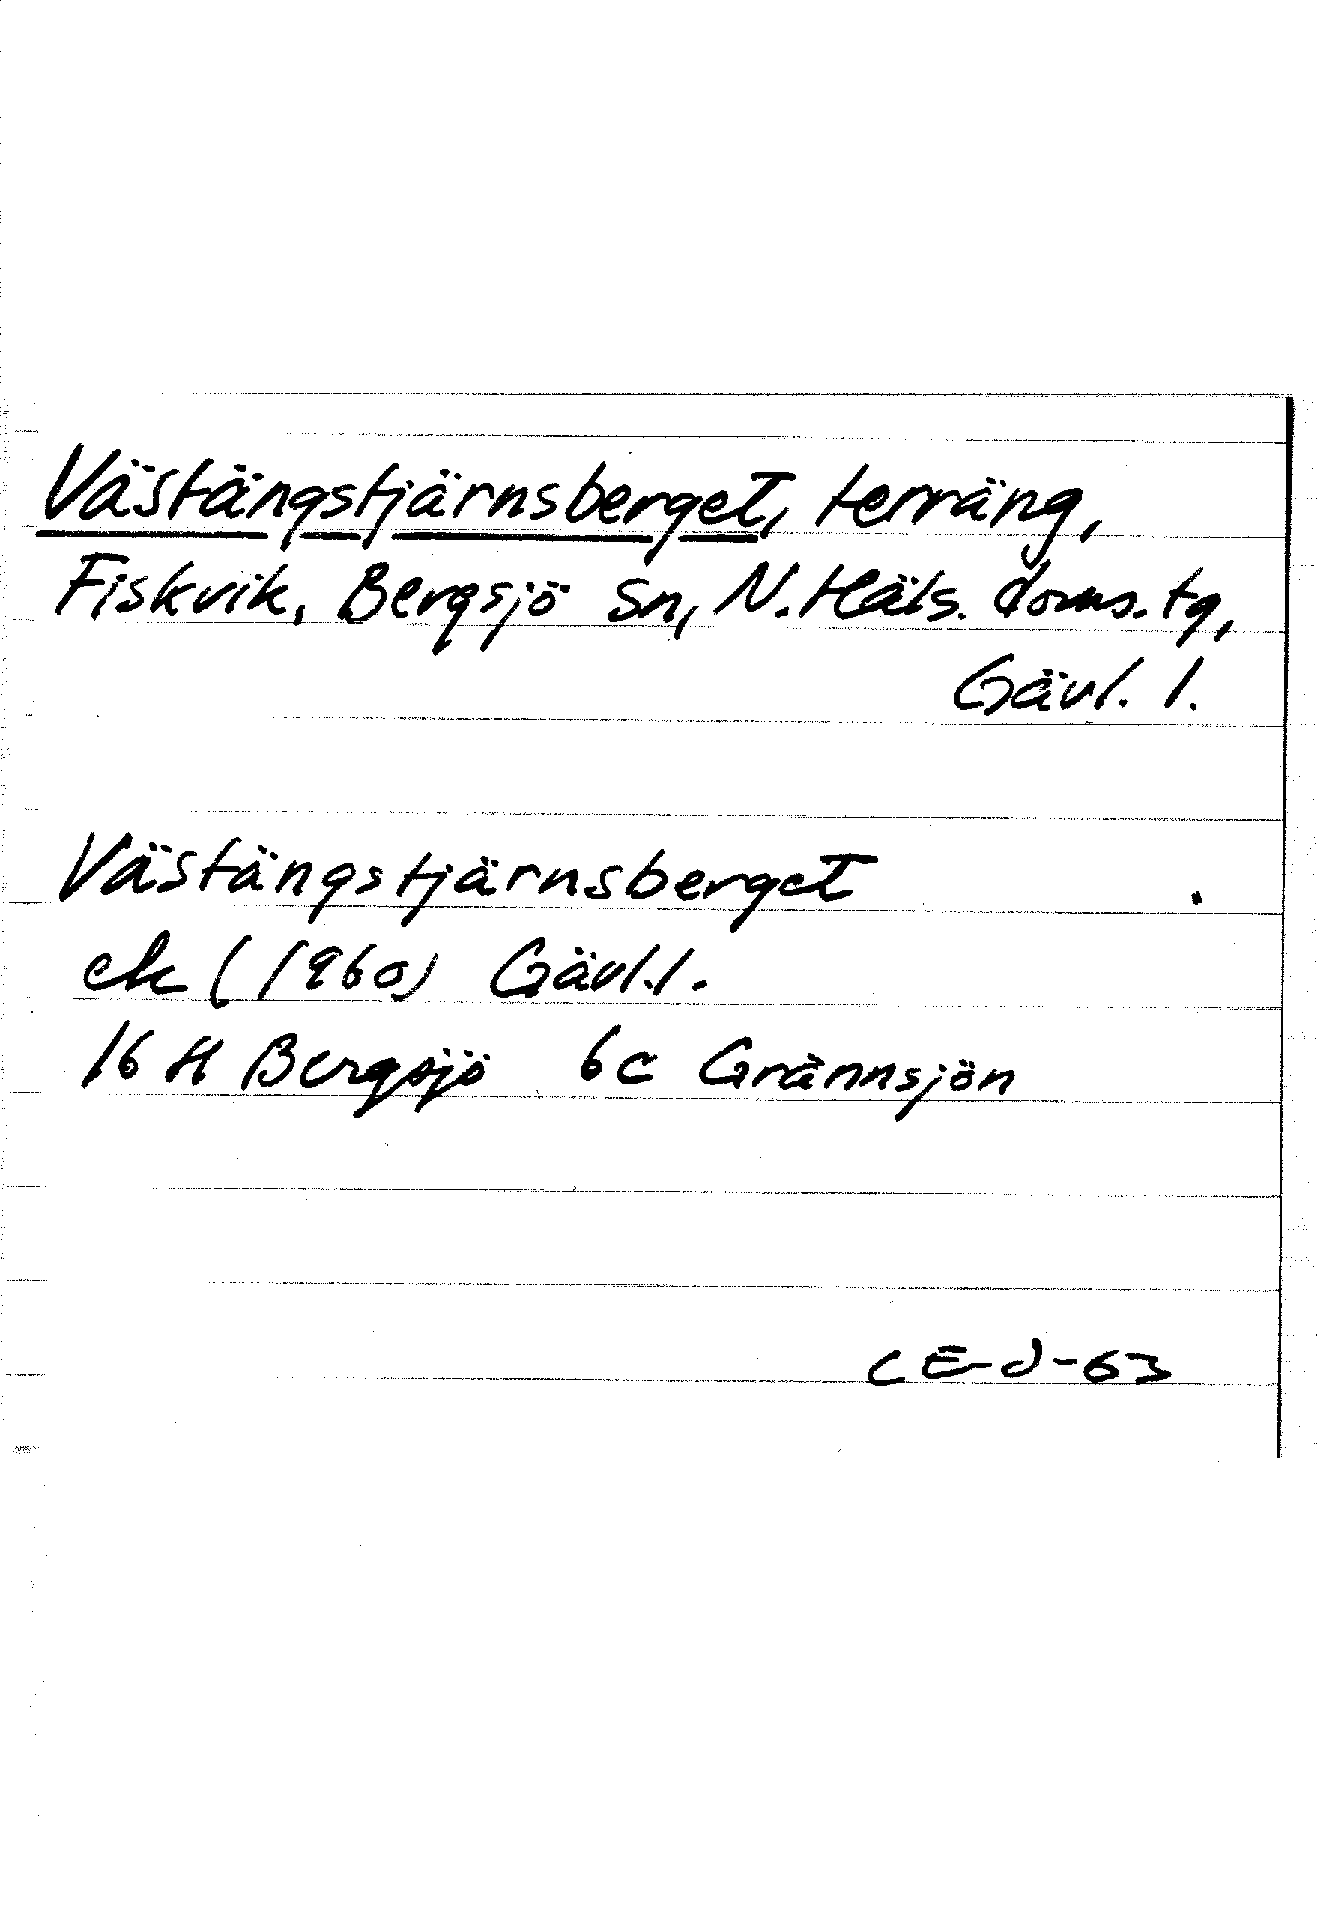 Västängstjärnsberget, terräng,
Fiskvik, Bergsjö sn, N. Häls. doms. tg,
Gävl. l.
Västängstjärnsberget
ek (1960) Gävl. l.
16 H Bergsjö 6c Grännsjön
CE-J-63